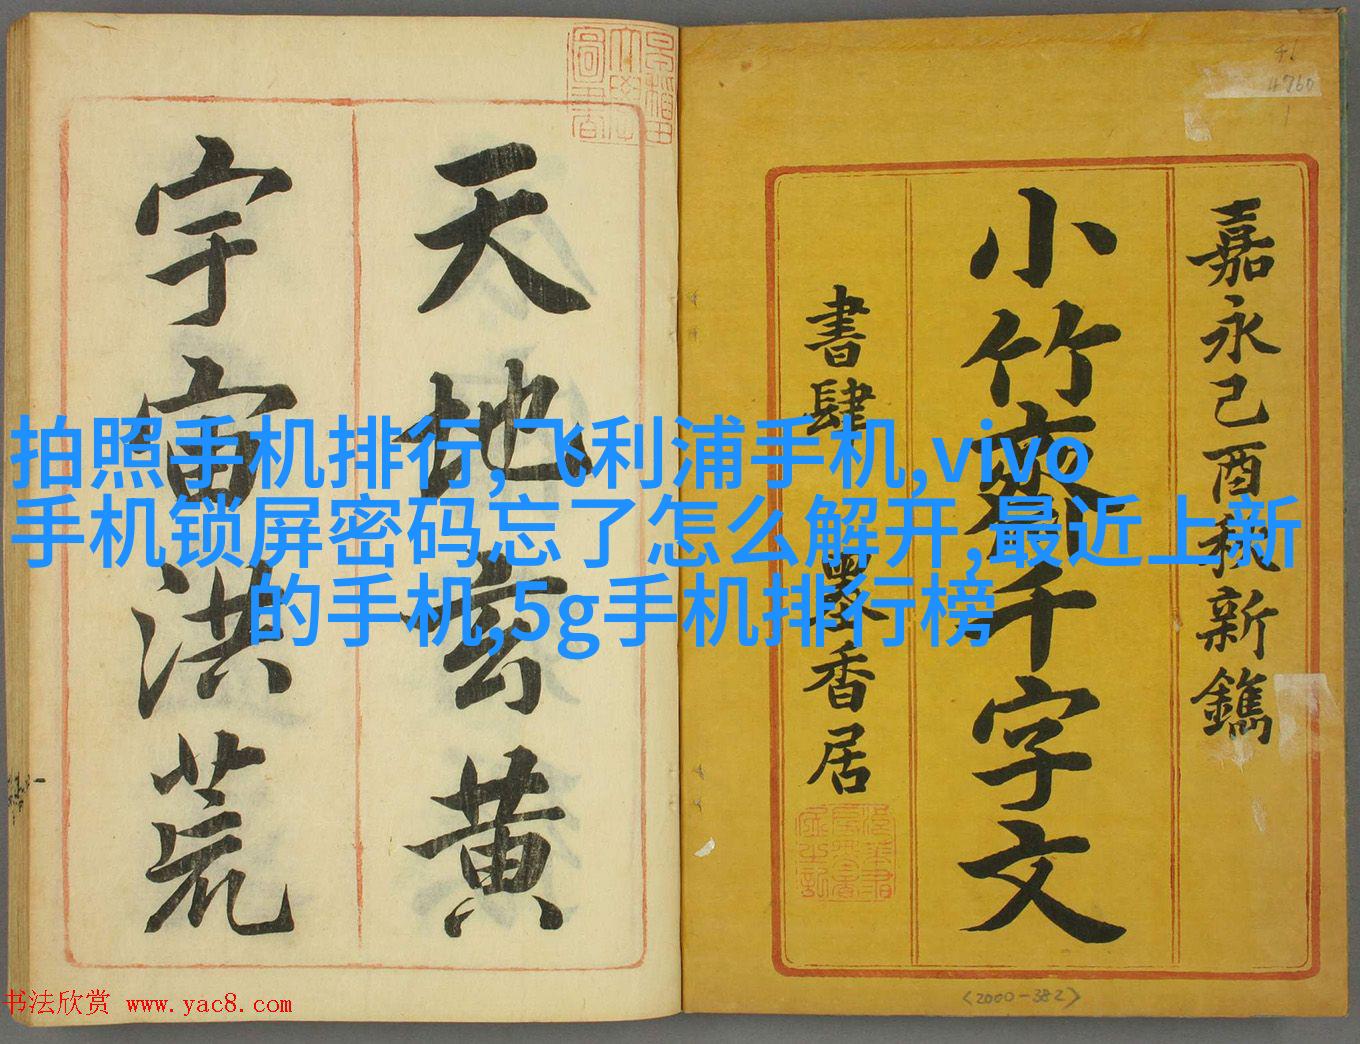 嘉永己酉秋新鐫
小竹齋千字文
書肆 墨香居
天地玄黄
宇宙洪荒
拍照手机排行,飞利浦手机,vivo
手机锁屏密码忘了怎么解开,最近上新
的手机,5g手机排行榜
46
4760
1
<2000-382>
书法欣赏 www.yac8.com